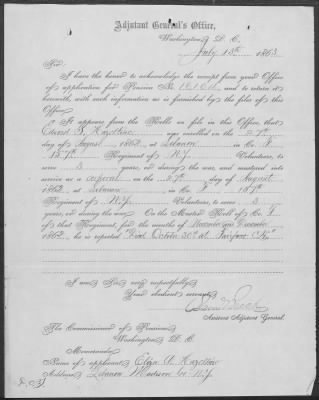 Adjutant General's Office,
Washington D. C.
July 13th 1863
Sir:
I have the honor to acknowledge the receipt from your Office
of application for Pension No.
and to return it
herewith, with such information as is furnished by the files of this
Office.
It appears from the Rolls on file in this Office, that
Edward S. Hazeltine was enrolled on the 27th
day of August 1862, at Lebanon in Co. F
157th Regiment of N.Y. Volunteers, to
serve 3 years, or during the war, and mustered into
service as a Corporal on the 27th day of August
1862, at Lebanon in Co. F 157th
Regiment of N.Y. Volunteers, to serve 3
years, or during the war. On the Muster Roll of Co. F
of that Regiment, for the months of November and December
1862, he is reported "Died October 30th at Fairfax C.H."
I am Sir very respectfully
Your obedient servant,
Assistant Adjutant General.
The Commissioner of Pensions,
Washington D. C.
Memoranda:
Name of applicant, Eliza A. Hazeltine
Address, Lebanon Madison Co. N.Y.